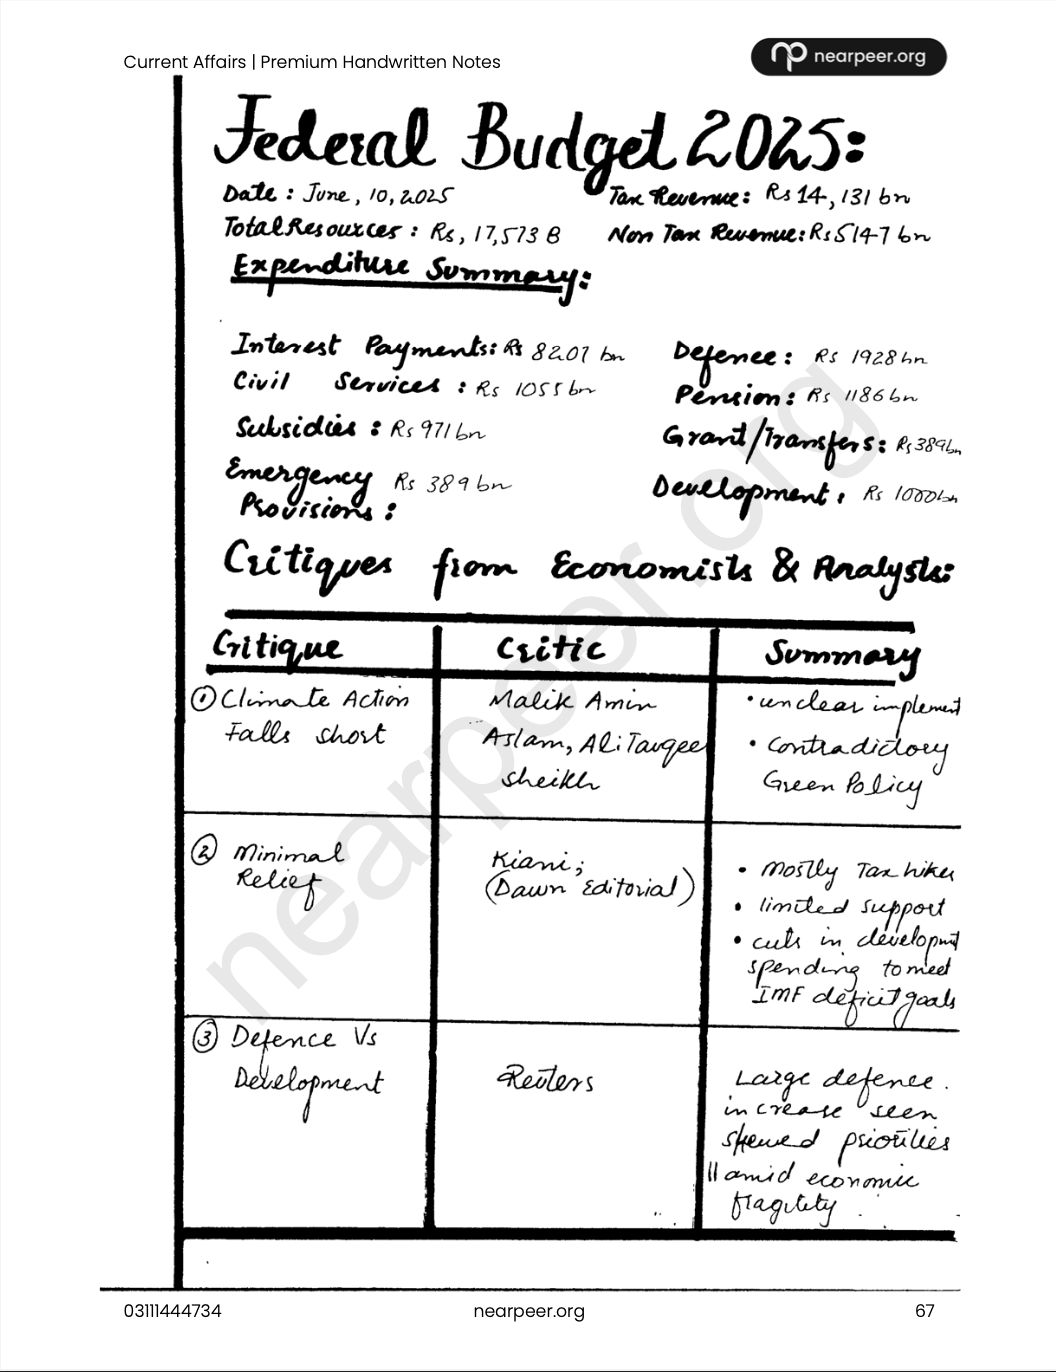 Current Affairs | Premium Handwritten Notes
nearpeer.org
Federal Budget 2025:
Date : June, 10, 2025
Tax Revenue: Rs 14, 131 bn
Total Resources : Rs, 17,573 B
Non Tax Revenue: Rs 5147 bn
Expenditure Summary:
Interest Payments: Rs 8207 bn
Defence : Rs 1928 bn
Civil Services : Rs 1055 bn
Pension : Rs 1186 bn
Subsidies : Rs 971 bn
Grant/Transfers: Rs 389bn
Emergency Rs 389 bn
Provisions :
Development, Rs 1000bn
Critiques from Economists & Analysts:
Critique
Critic
Summary
① Climate Action
Falls short
Malik Amin
Aslam, Ali Tauqee
sheikh
• unclear implement
• Contradictory
Green Policy
② Minimal
Relief
Kiani;
(Dawn Editorial)
• mostly Tax hikes
• limited support
• cuts in developmnt
spending to meet
IMF deficit goals
③ Defence Vs
Development
Reuters
Large defence.
increase seen
skewed priorities
amid economic
fragility
nearpeer.org
03111444734
nearpeer.org
67